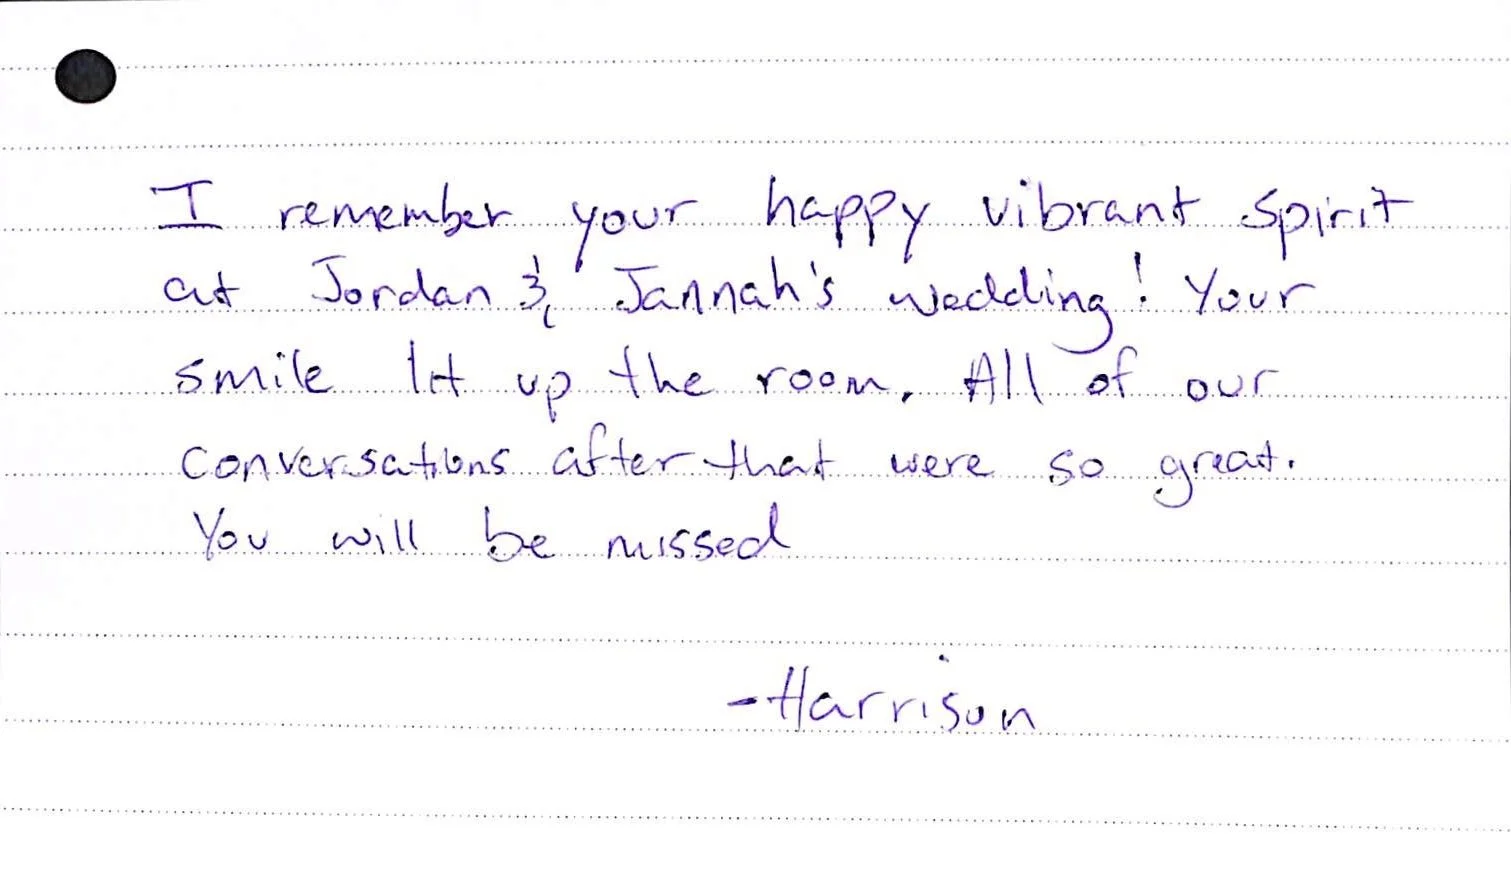 I remember your happy vibrant spirit
at Jordan & Jannah's wedding! Your
smile lit up the room. All of our
conversations after that were so great.
You will be missed
-Harrison